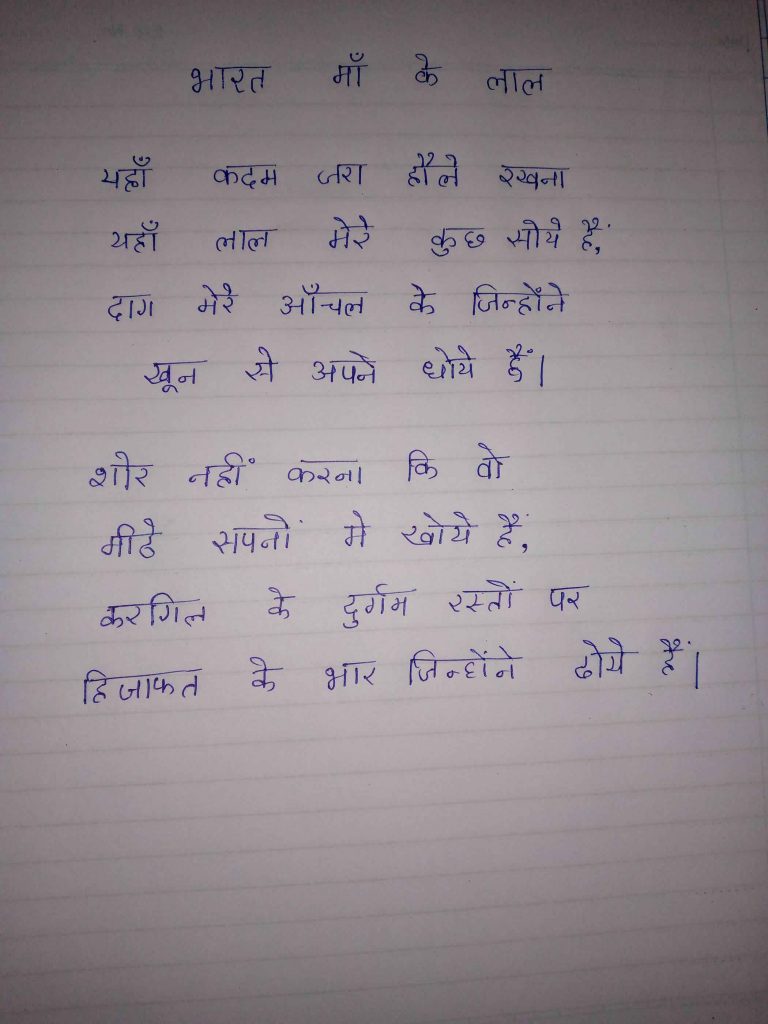 भारत माँ के लाल
यहाँ कदम जरा हौले रखना
यहाँ लाल मेरे कुछ सोये हैं,
दाग मेरे आँचल के जिन्होंने
खून से अपने धोये हैं।
शोर नहीं करना कि वो
मीठे सपनों मे खोये हैं,
करगिल के दुर्गम रस्तों पर
हिजाफत के भार जिन्होंने ढोये हैं।